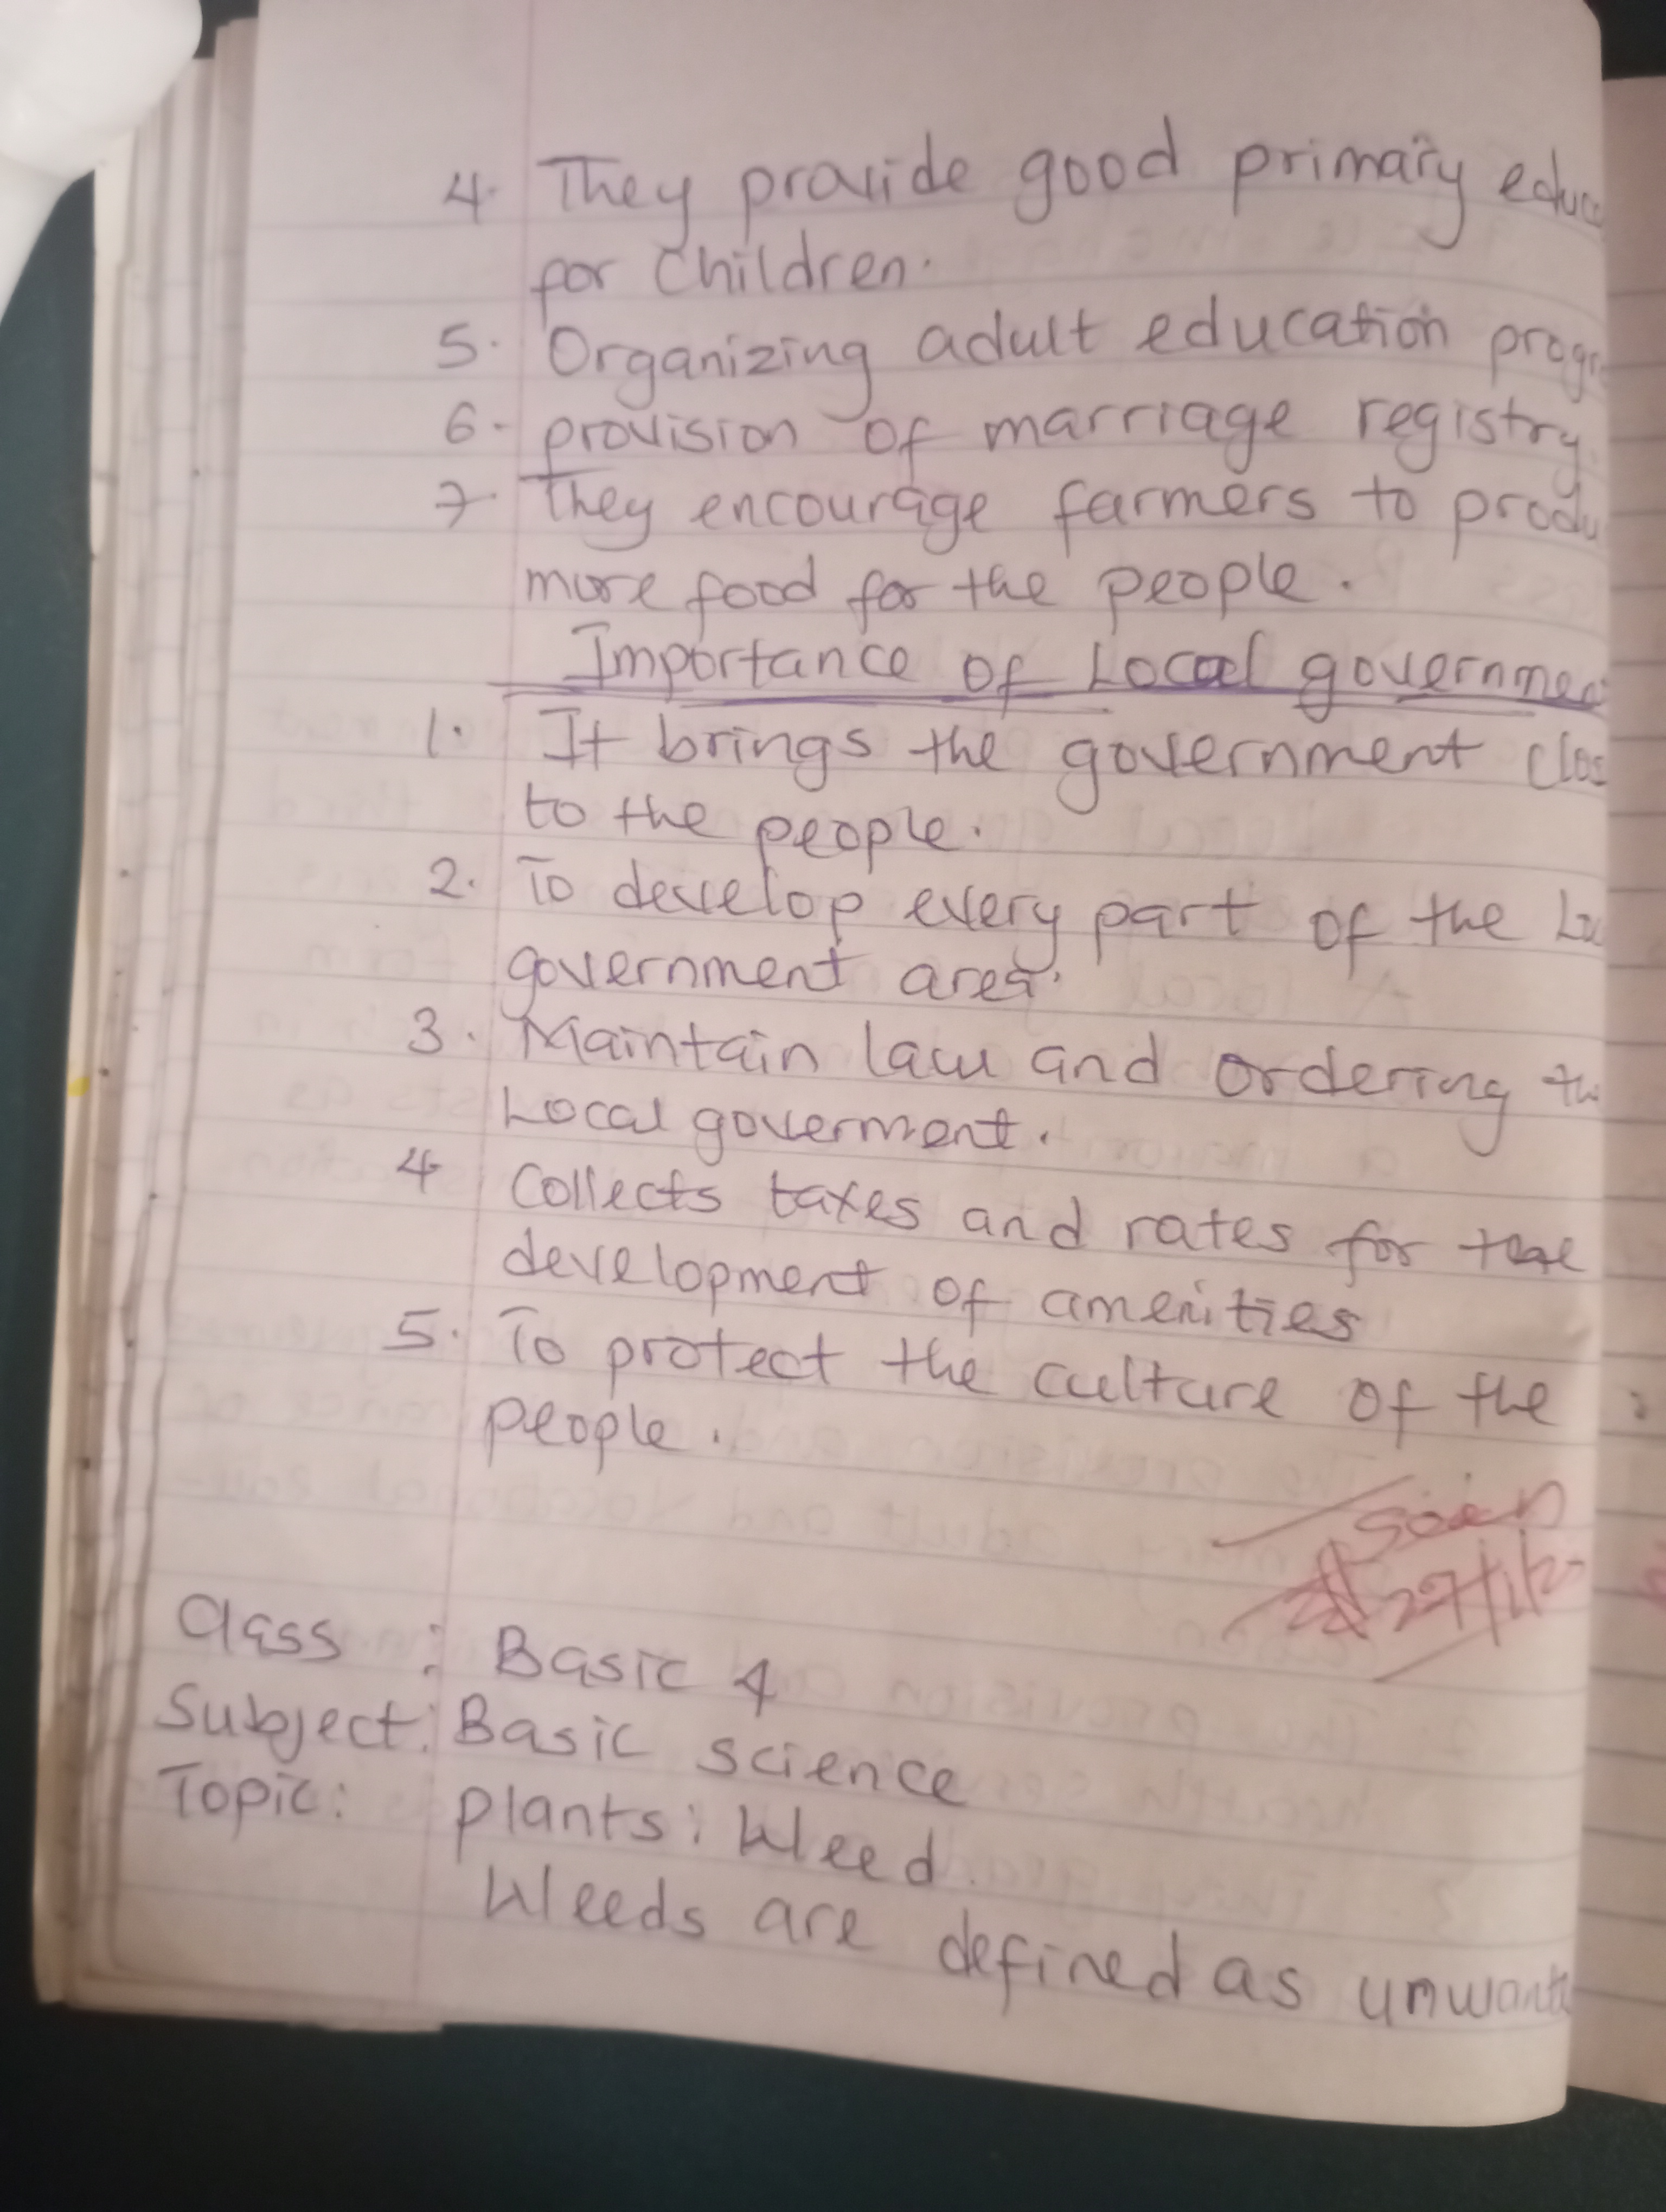 4. They provide good primary educ
for Children.
5. Organizing adult education progr
6. provision of marriage registry.
7. They encourage farmers to produ
more food for the people.
Importance of Local governmen
1. It brings the government clos
to the people.
2. To develop every part of the Lo
government area.
3. Maintain law and ordering the
Local goverment.
4 Collects taxes and rates for the
development of amenities
5. To protect the culture of the
people.
Seen
27/1/2
Class : Basic 4
Subject: Basic science
Topic: plants: Weed.
Weeds are defined as unwante